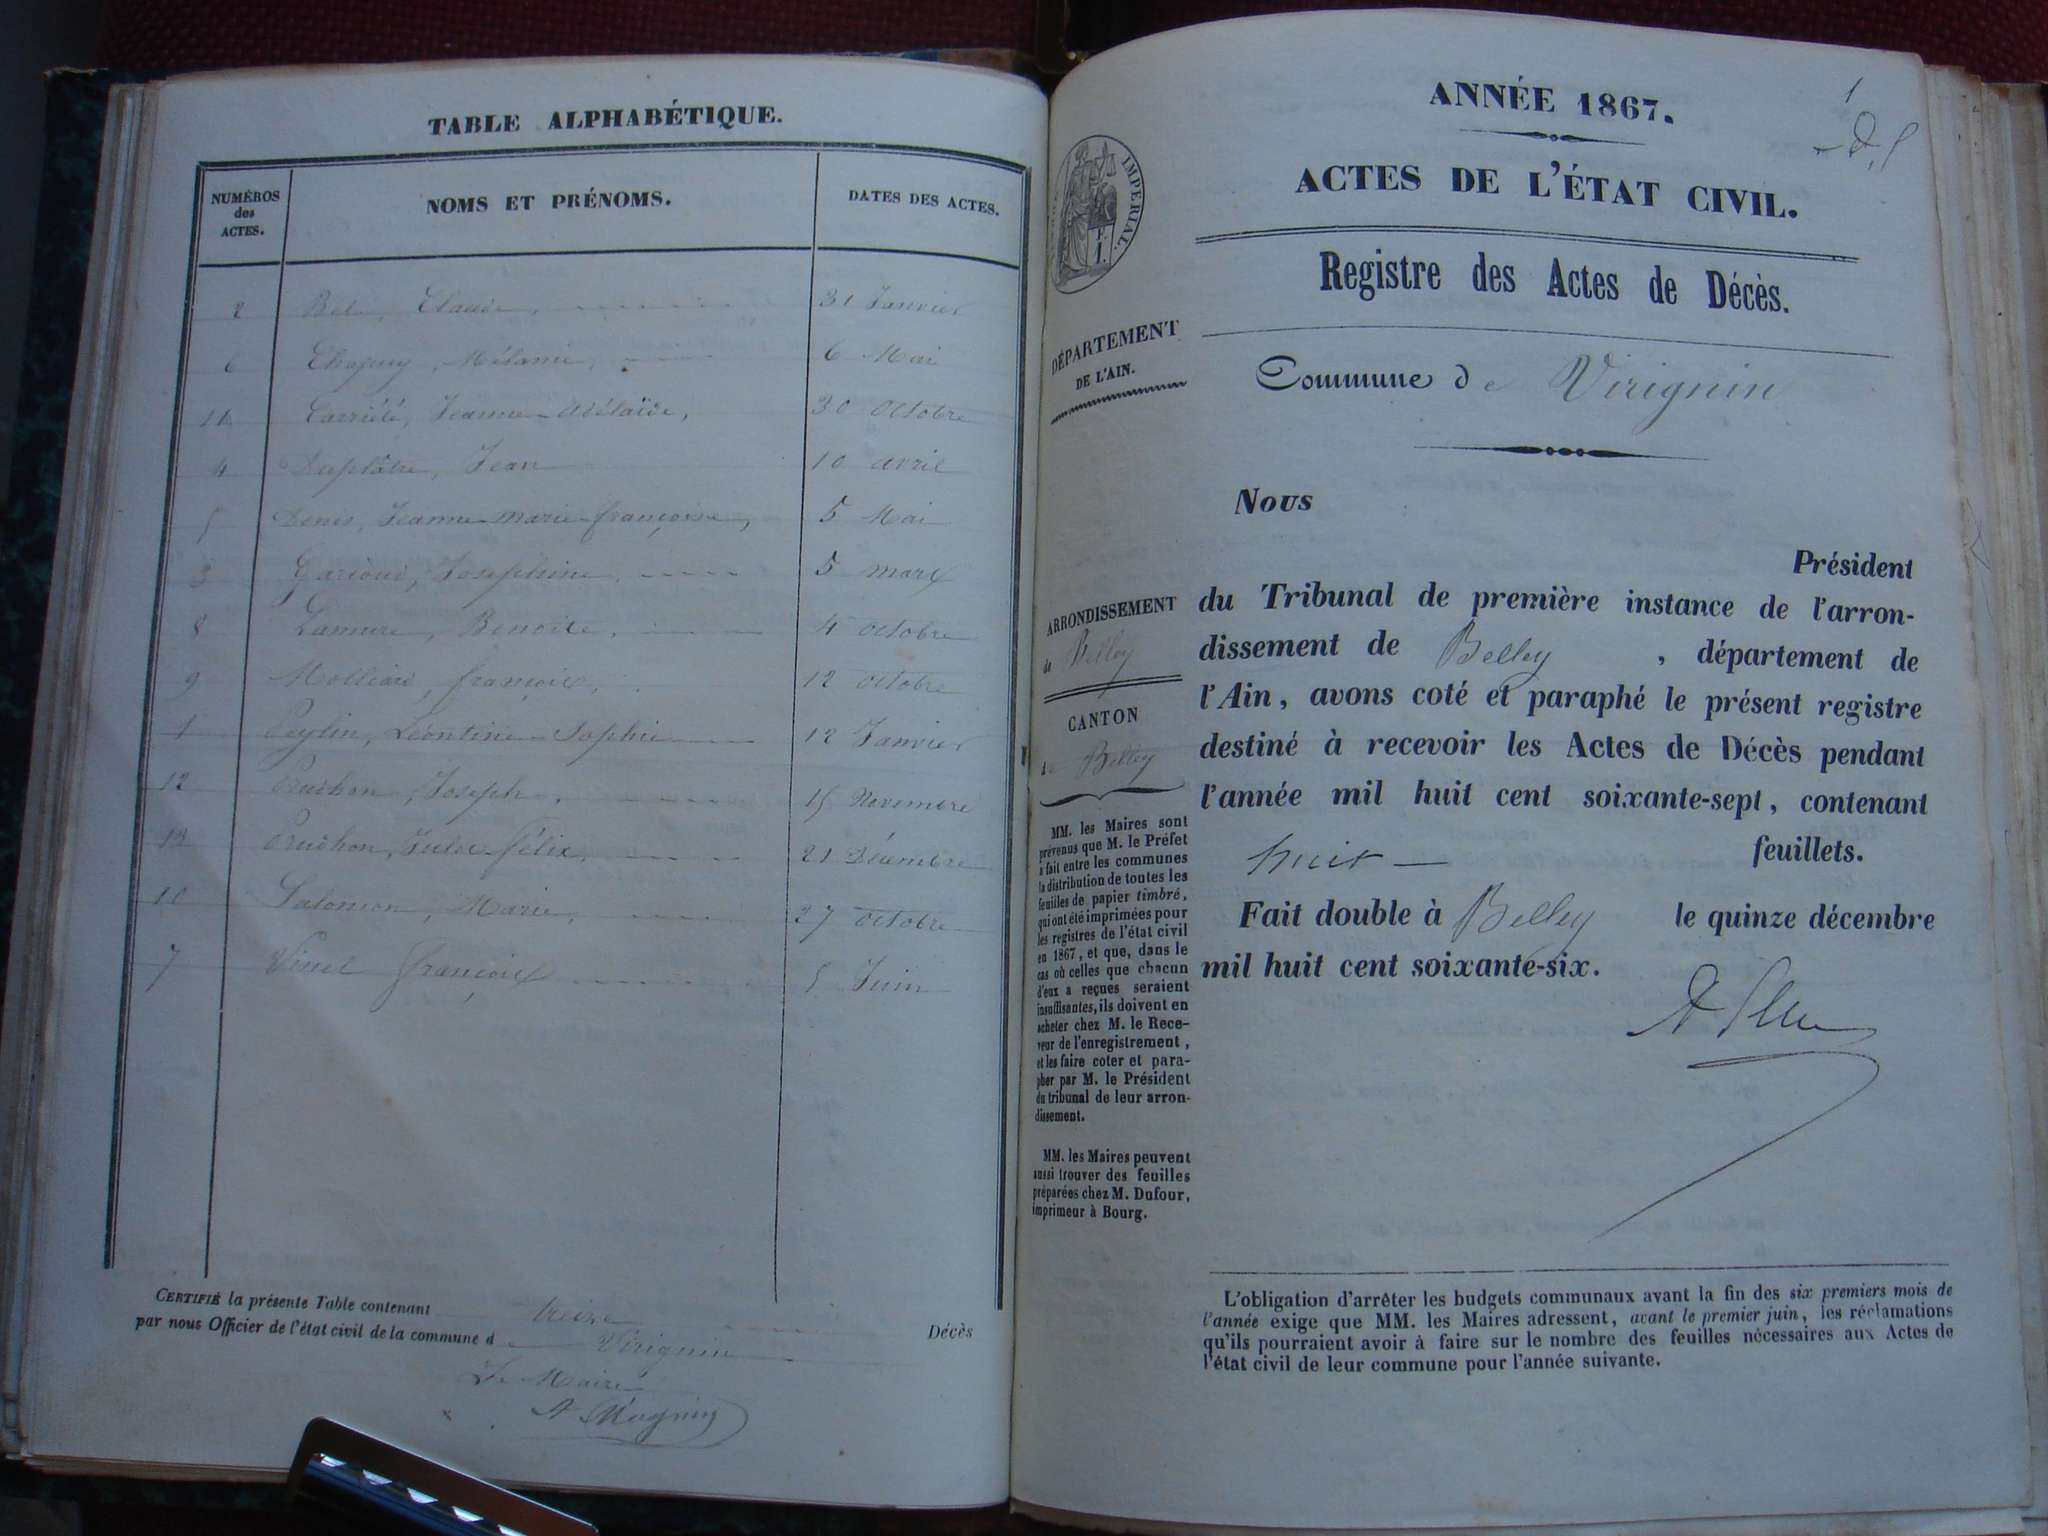 TABLE ALPHABÉTIQUE.
NUMÉROS des ACTES. NOMS ET PRÉNOMS. DATES DES ACTES.
2 Claude, 31 Janvier
6 Chapuy, Mélanie, 6 Mai
Jeanne-Adélaïde, 30 octobre
4 Duplâtre, Jean 10 avril
5 Denis, Jeanne-marie-françoise, 5 Mai
3 Joséphine, 5 mars
8 Lamure, Benoite, 4 octobre
9 Molliard, françois, 12 octobre
1 Peylin, Léontine-Sophie 12 Janvier
12 Pruchon, Joseph, 15 Novembre
13 Pruchon, Jules-félix, 21 Décembre
10 Salomon, Marie, 27 octobre
7 Vinet françois 5 Juin
CERTIFIÉ la présente Table contenant treize Décès
par nous Officier de l'état civil de la commune d Virignin
Le Maire
IMPÉRIAL.
1.
DÉPARTEMENT
DE L'AIN.
ARRONDISSEMENT
de Belley
CANTON
de Belley
MM. les Maires sont
prévenus que M. le Préfet
a fait entre les communes
la distribution de toutes les
feuilles de papier timbré,
qui ont été imprimées pour
les registres de l'état civil
en 1867, et que, dans le
cas où celles que chacun
d'eux a reçues seraient
insuffisantes, ils doivent en
acheter chez M. le Rece-
veur de l'enregistrement,
et les faire coter et para-
pher par M. le Président
du tribunal de leur arron-
dissement.
MM. les Maires peuvent
aussi trouver des feuilles
préparées chez M. Dufour,
imprimeur à Bourg.
1
ANNÉE 1867.
ACTES DE L'ÉTAT CIVIL.
Registre des Actes de Décès.
Commune de Virignin
Nous
Président
du Tribunal de première instance de l'arron-
dissement de Belley, département de
l'Ain, avons coté et paraphé le présent registre
destiné à recevoir les Actes de Décès pendant
l'année mil huit cent soixante-sept, contenant
huit feuillets.
Fait double à Belley le quinze décembre
mil huit cent soixante-six.
L'obligation d'arrêter les budgets communaux avant la fin des six premiers mois de
l'année exige que MM. les Maires adressent, avant le premier juin, les réclamations
qu'ils pourraient avoir à faire sur le nombre des feuilles nécessaires aux Actes de
l'état civil de leur commune pour l'année suivante.